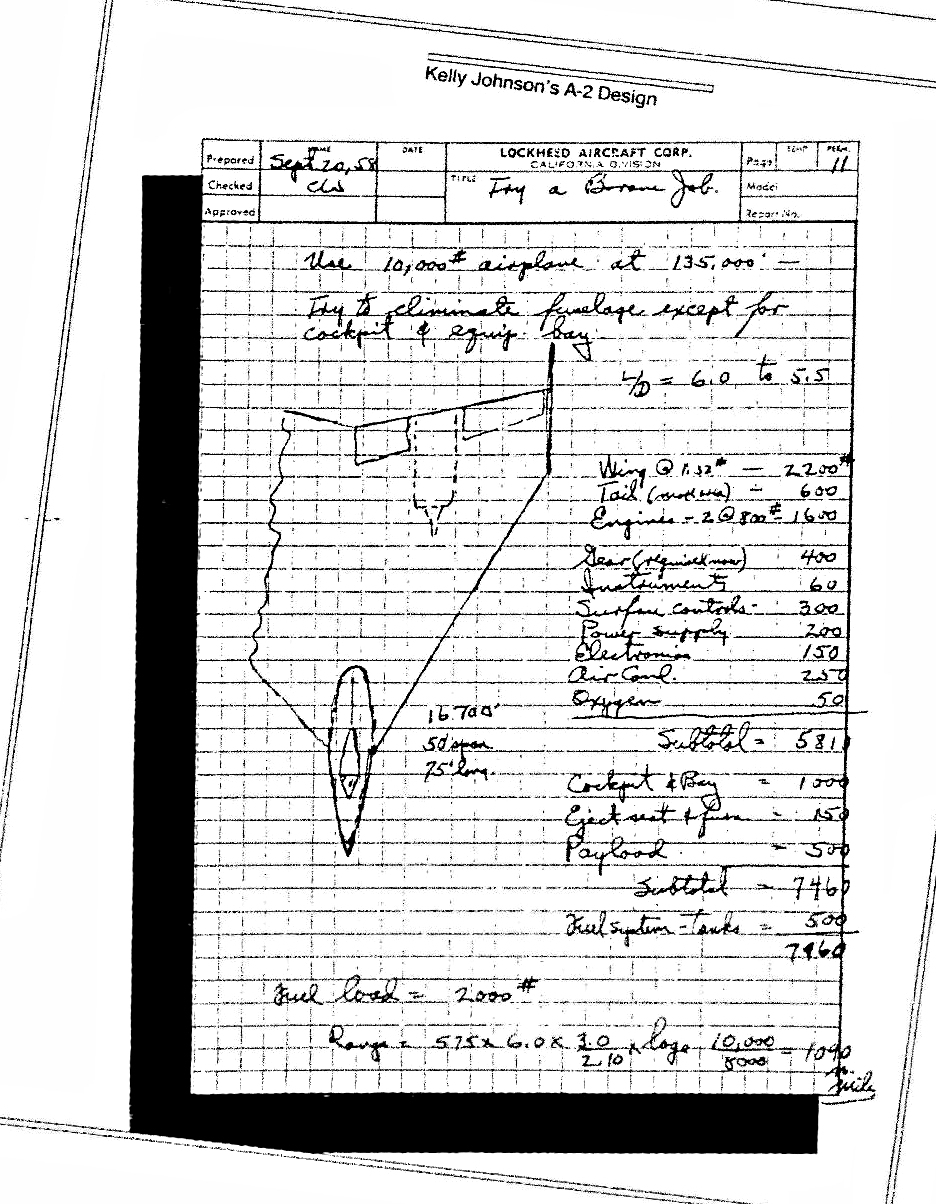 Kelly Johnson's A-2 Design
Prepared NAME Sept 20, 58 DATE LOCKHEED AIRCRAFT CORP. Page TEMP. PERM. 11
CALIFORNIA DIVISION
Checked TITLE Try a Borane Job. Model
Approved Report No.
Use 10,000# airplane at 135,000' —
Try to eliminate fuselage except for
cockpit & equip. bay
L/D = 6.0 to 5.5
Wing @ 1.32# — 2200#
Tail 600
Engines - 2 @ 800# = 1600
Gear (required now) 400
Instruments 60
Surface controls - 300
Power supply 200
Electronics 150
Air Cond. 250
Oxygen 50
16 700'
50' span
75' long.
Subtotal = 5810
Cockpit & Bay = 1000
Eject seat + = 150
Payload = 500
Subtotal = 7460
Fuel system - Tanks = 500
7960
Fuel load = 2000#
Range = 575 x 6.0 x 3.0/2.10 x loge 10,000/8000 = 1090
n. mile